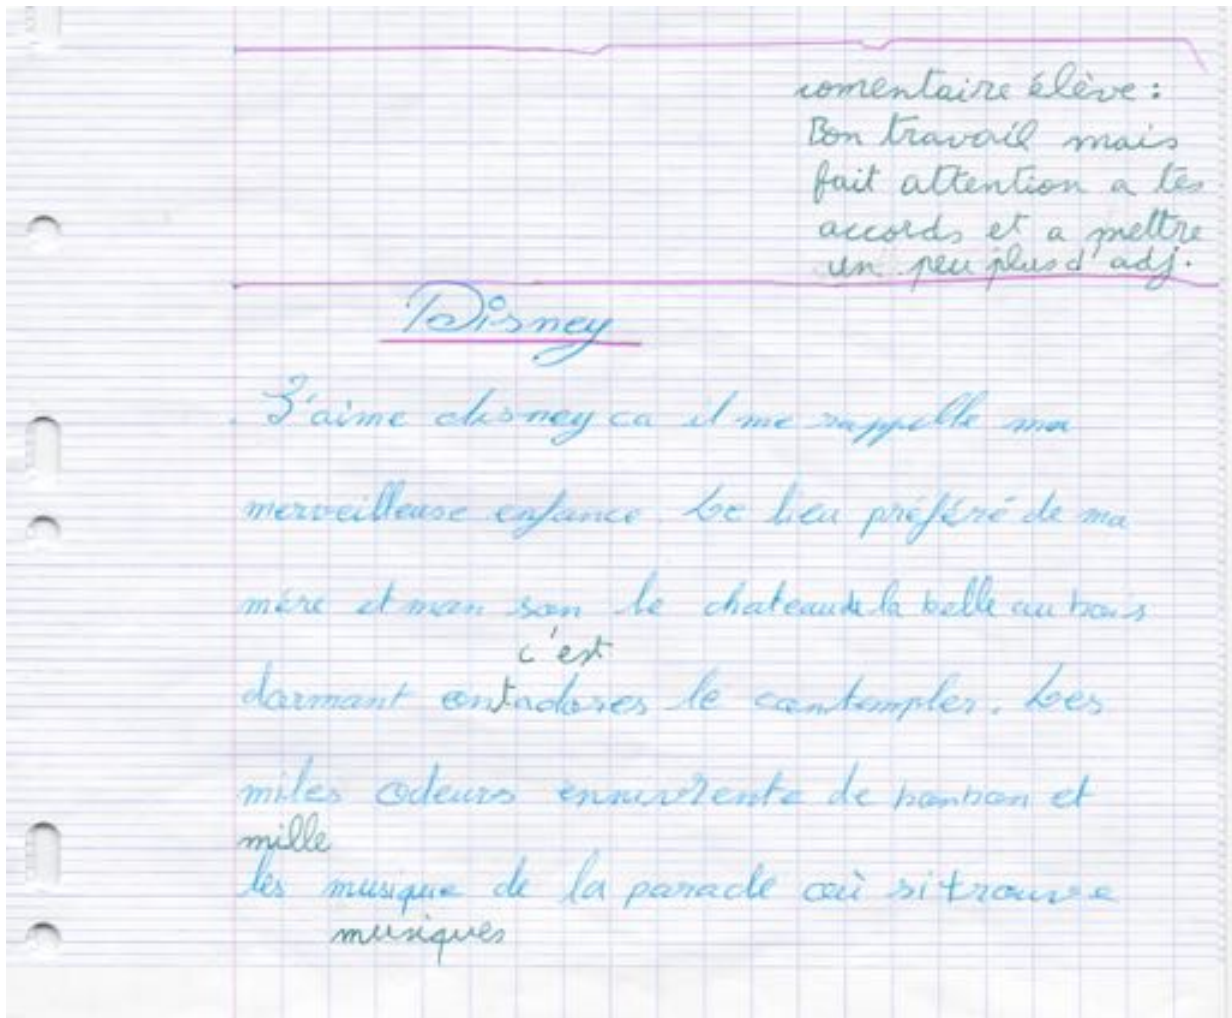 comentaire élève :
Bon travail mais
fait attention a tes
accords et a mettre
un peu plus d'adj.
Disney
J'aime disney ca il me rappelle ma
merveilleuse enfance. Le lieu préféré de ma
mère et mon son le chateau de la belle au bois
c'est
dormant ont adores le contempler. Les
miles odeurs ennivrente de bonbon et
mille
les musique de la parade où si trouve
musiques